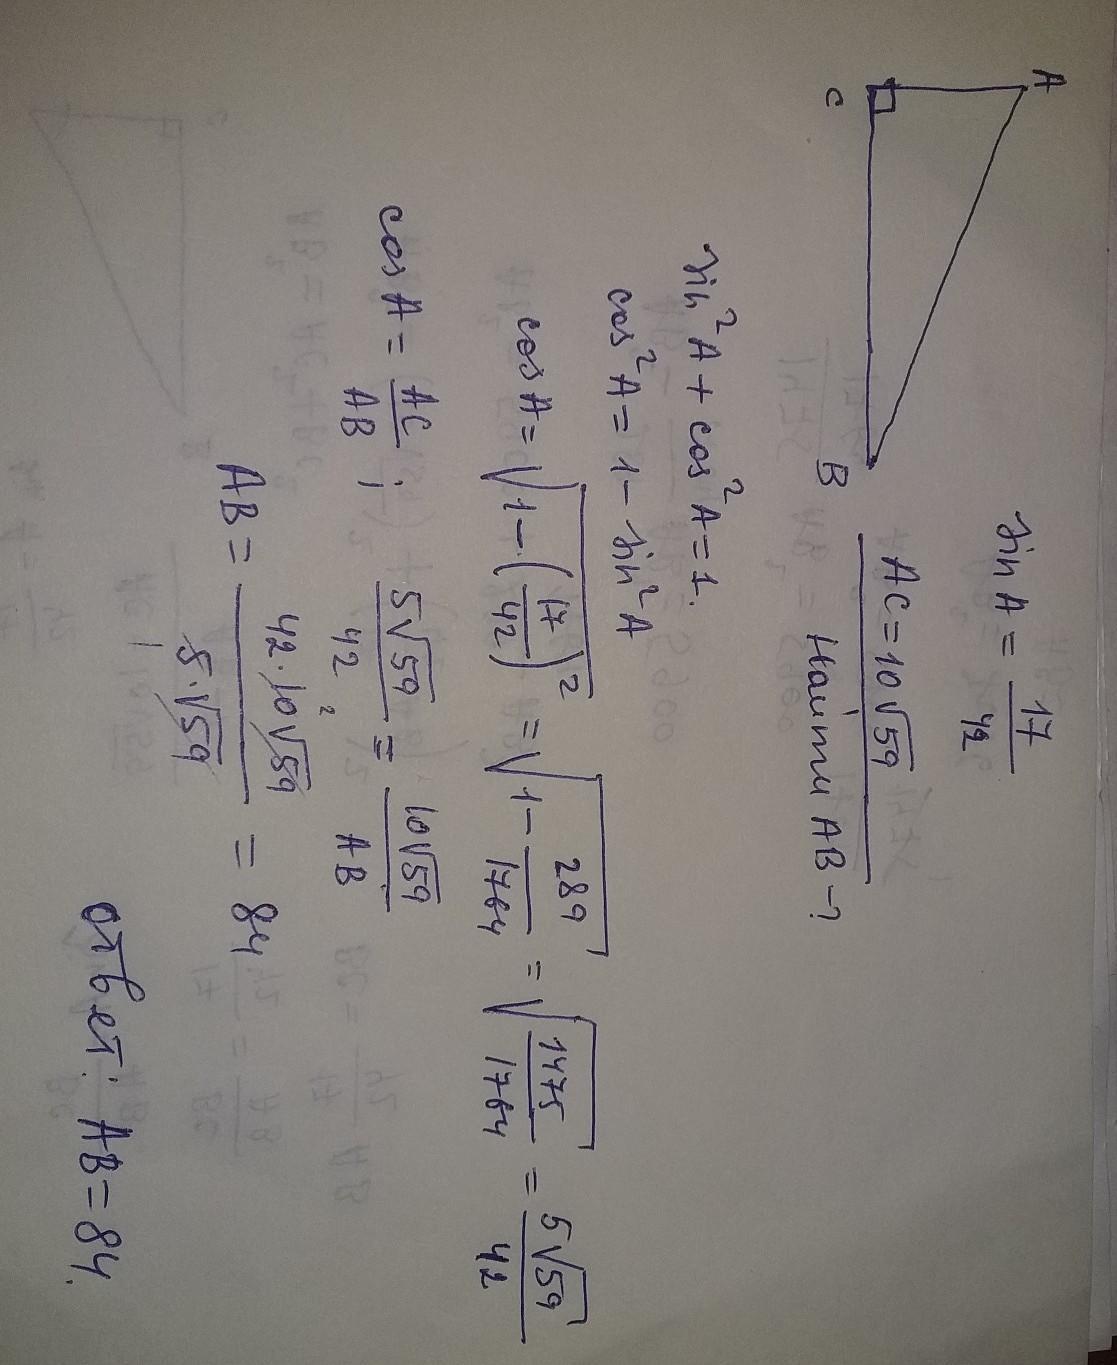 A
C
B
sin A = 17/42
AC = 10√59
Найти AB - ?
sin²A + cos²A = 1.
cos²A = 1 - sin²A
cos A = √(1 - (17/42)²) = √(1 - 289/1764) = √(1475/1764) = 5√59/42
cos A = AC/AB ; 5√59/42 = 10√59/AB
AB = 42·10√59/5·√59 = 84
2
1
Ответ: AB = 84.